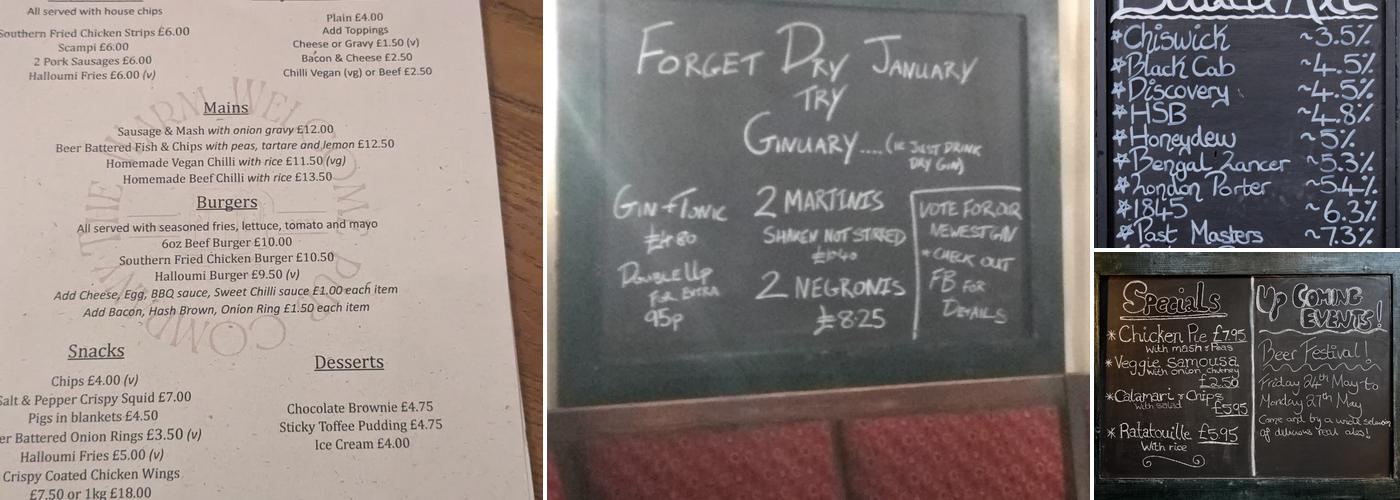 All served with house chips
Southern Fried Chicken Strips £6.00
Scampi £6.00
2 Pork Sausages £6.00
Halloumi Fries £6.00 (v)
Plain £4.00
Add Toppings
Cheese or Gravy £1.50 (v)
Bacon & Cheese £2.50
Chilli Vegan (vg) or Beef £2.50
Mains
Sausage & Mash with onion gravy £12.00
Beer Battered Fish & Chips with peas, tartare and lemon £12.50
Homemade Vegan Chilli with rice £11.50 (vg)
Homemade Beef Chilli with rice £13.50
Burgers
All served with seasoned fries, lettuce, tomato and mayo
6oz Beef Burger £10.00
Southern Fried Chicken Burger £10.50
Halloumi Burger £9.50 (v)
Add Cheese, Egg, BBQ sauce, Sweet Chilli sauce £1.00 each item
Add Bacon, Hash Brown, Onion Ring £1.50 each item
Snacks
Chips £4.00 (v)
Salt & Pepper Crispy Squid £7.00
Pigs in blankets £4.50
er Battered Onion Rings £3.50 (v)
Halloumi Fries £5.00 (v)
Crispy Coated Chicken Wings
£7.50 or 1kg £18.00
Desserts
Chocolate Brownie £4.75
Sticky Toffee Pudding £4.75
Ice Cream £4.00
THE WARM WELCOME PUB COMPANY
FORGET DRY JANUARY
TRY
GINUARY.... (IE JUST DRINK
DRY GIN)
GIN + TONIC
£4.80
DOUBLE UP
FOR EXTRA
95p
2 MARTINIS
SHAKEN NOT STIRRED
2 NEGRONIS
£8.25
VOTE FOR OUR
NEWEST GIN
* CHECK OUT
FB FOR
DETAILS
Chiswick ~3.5%
Black Cab ~4.5%
Discovery ~4.5%
HSB ~4.8%
Honeydew ~5%
Bengal Lancer ~5.3%
London Porter ~5.4%
1845 ~6.3%
Past Masters ~7.3%
Specials
* Chicken Pie £7.95
with mash & Peas
* Veggie Samousa
with onion chutney
£2.50
* Calamari & Chips
with salad £5.95
* Ratatouille £5.95
With rice
Up COMING
EVENTS!
Beer Festival!
Friday 24th May to
Monday 27th May
Come and try a wide selection
of delicious real ales!